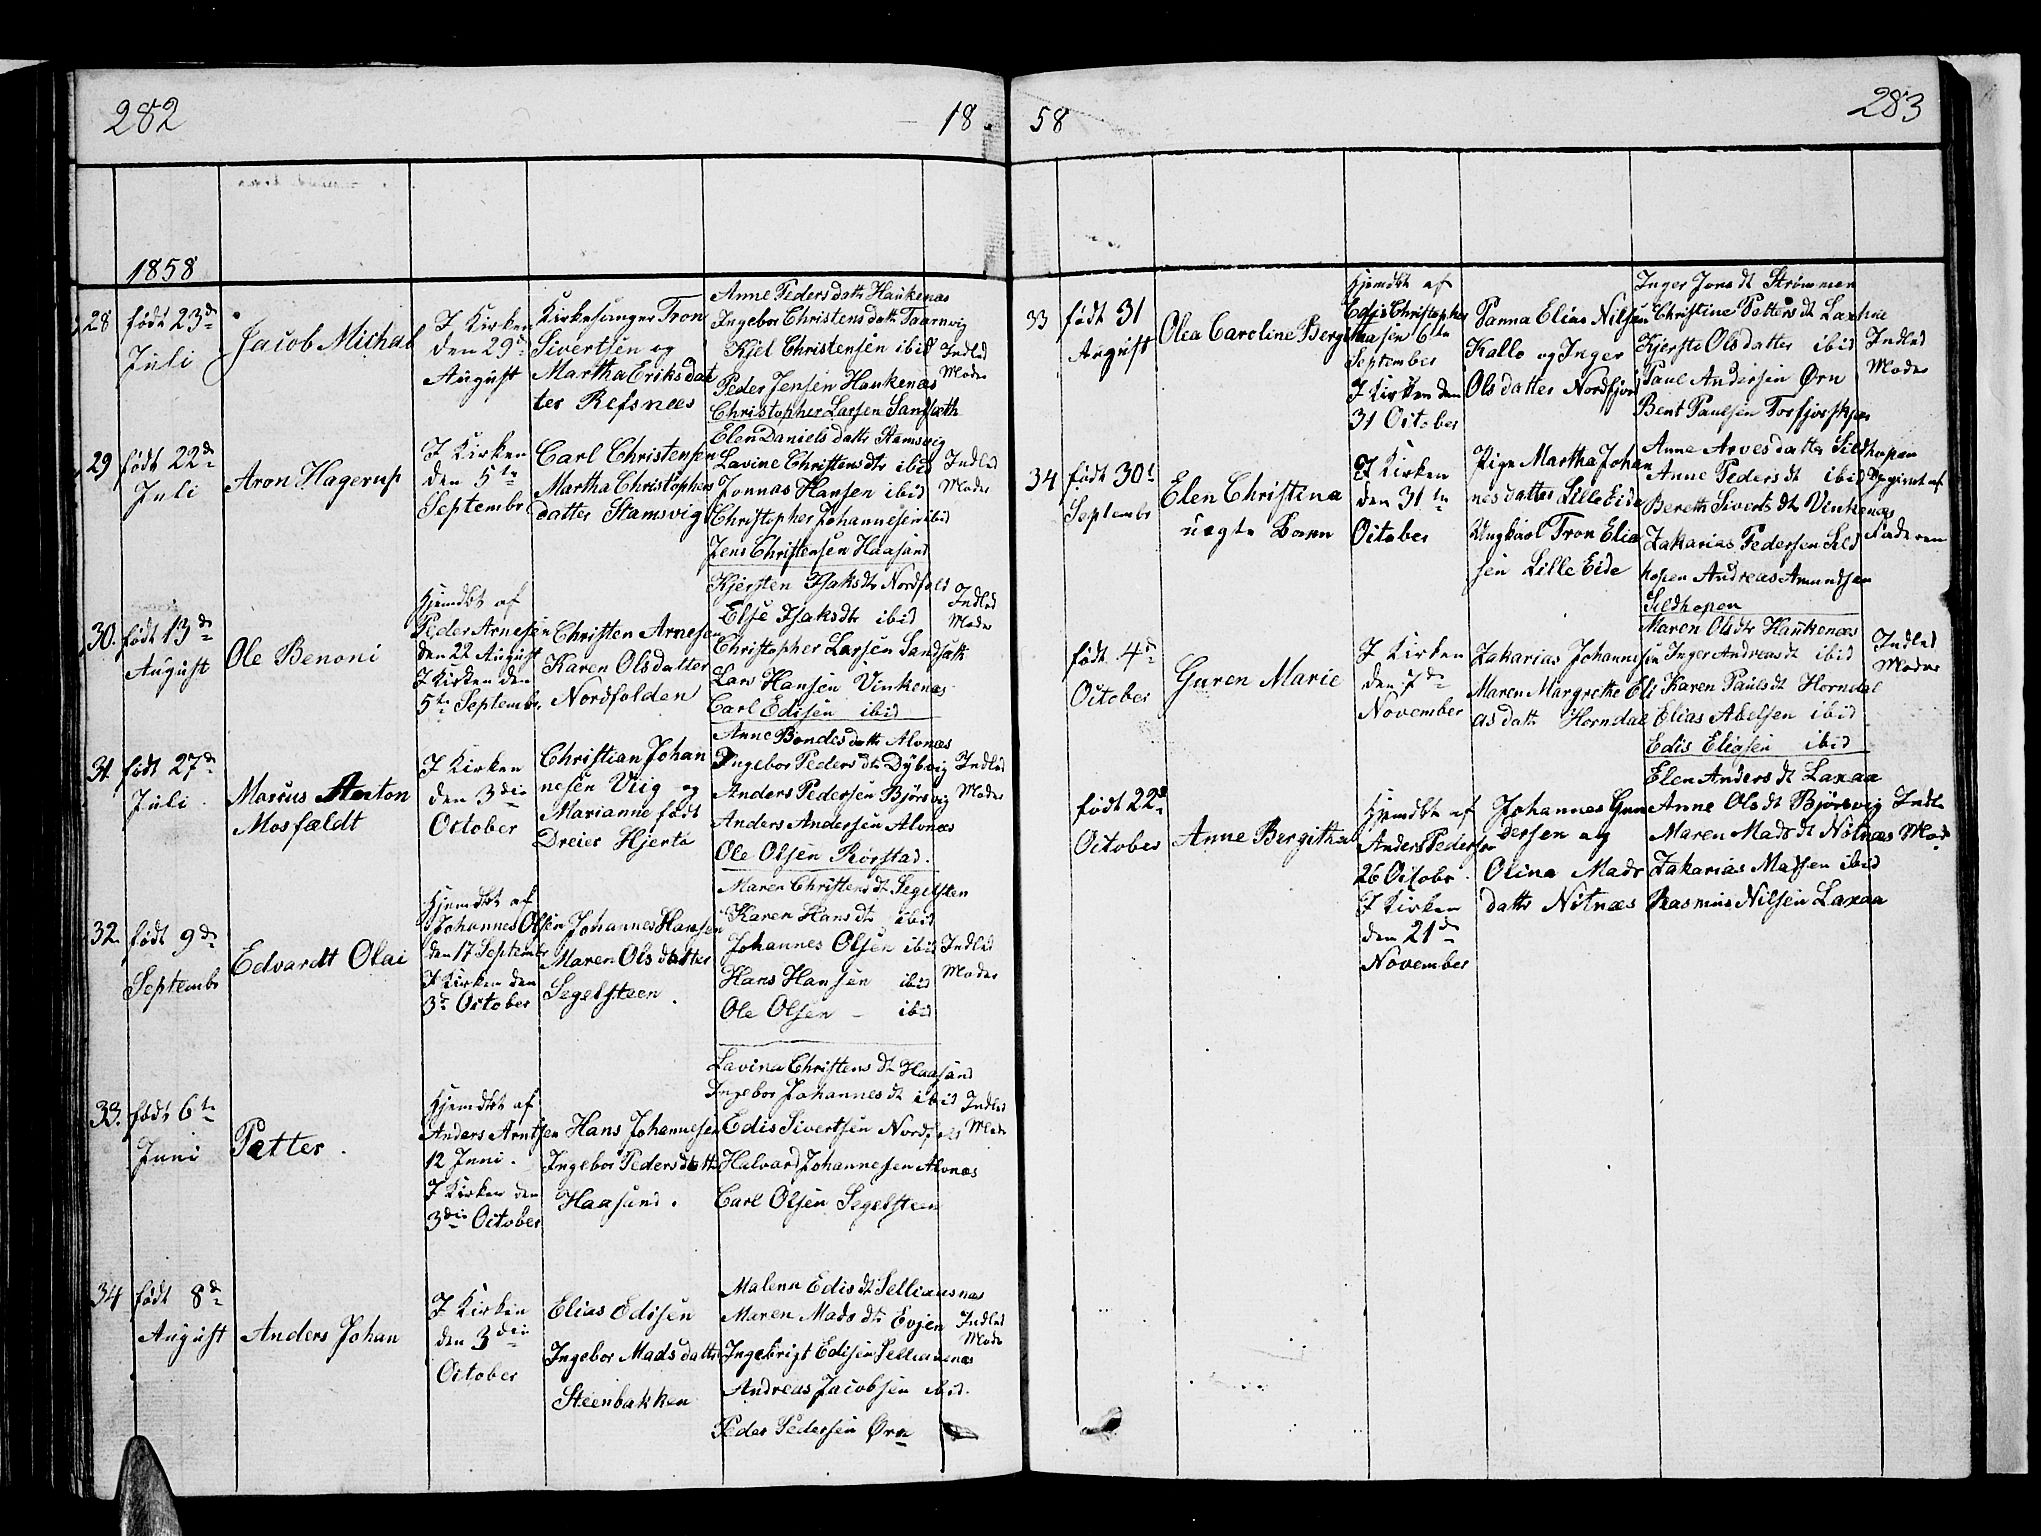 282
18
1858
28
født 23de
Juli
Jacob Michal
I Kirken
den 29de
August
Kirkesanger Tron
Sivertsen og
Martha Eriksdat
ter Refsnees
Anne Pedersdatte Haukenæs
Ingebor Christensdatte Taarnvig
Kjel Christensen ibid
Peder Jensen Haukenæs
Christopher Larsen Sandsæth
Indled
Moder
29
født 22de
Juli
Aron Hagerup
I Kirken
den 5te
Septembr
Carl Christensen
Martha Christophers
datter Stamsvig
Elen Danielsdatte Stamsvig
Lavine Christensdtr ibid
Jonnas Hansen ibid
Christopher Johannesen ibid
Jens Christensen Haasand
Indled
Moder
30.
født 13de
August
Ole Benoni
Hjemdbt af
Peder Arnesen
den 22 August
I Kirken den
5te Septembr.
Christen Arnesen
Karen Olsdatter
Nordfolden
Kjersten Isaksdtr Nordfold
Else Isaksdtr ibid
Christopher Larsen Sandsæth
Lars Hansen Vinkenæs
Carl Edisen ibid
Indled
Moder
31.
født 27de
Juli
Marcus Anton
Mosfældt
I Kirken
den 3die
October
Christian Johan
nesen Viig og
Marianne født
Dreier Hjerto
Anne Bondesdatte Alvnæs
Ingebor Pedersdtr Dybvig
Anders Pedersen Bjørsvig
Anders Andersen Alvnæs
Ole Olsen Rørstad.
Indled
Moder
32.
født 9de
Septembr
Edvardt Olai
Hjemdbt af
Johannes Olsen
den 17 Septembr
I Kirken den
3de October
Johannes Hansen
Maren Olsdatter
Segelsteen.
Maren Christensdt Segelsteen
Karen Hansdtr ibid
Johannes Olsen ibid
Hans Hansen ibid
Ole Olsen - ibid
Indled
Moder
33.
født 6te
Juni
Petter.
Hjemdbt af
Anders Arntsen
12 Juni.
I Kirken den
3die October
Hans Johannesen
Ingebor Pedersdatte
Haasund.
Lavina Christensdtr Haasund
Ingebor Johannesdt ibid
Edis Sivertsen Nordfold
Halvard Johannesen Alvnæs
Carl Olsen Segelsteen
Indled
Moder
34
født 8de
August
Anders Johan
I Kirken
den 3die
October
Elias Edisen
Ingebor Madsdatte
Steenbakken
Malena Edisdt Sellianæs
Maren Madsdtr Evjen
Ingebrigt Edisen Sellianenæs
Andreas Jacobsen ibid.
Peder Pedersen Ørn
Indled
Mode
58
283
33
født 31
August
Olea Caroline Bergitha
Hjemdbt af
Edis Christopher
sen 6te
September
I Kirken den
31 October
Panna Elias Nilsen
Kallo og Inger
Olsdatter Nordfjord
Inger Jonsdt Strømmen
Christine Pettersdt Laxhae
Kjerste Olsdatter ibid
Paul Andersen Ørn
Bent Paulsen
Indled
Moder
34
født 30te
Septembr
Elen Christina
uægte Barn
I Kirken
den 31te
October
Pige Martha Johan
nesdatter Lille Eide
Ungkarl Tron Elia
sen Lille Eide
Anne Arvesdatter Sildhopen
Anne Pedersdt ibid
Bereth Sivertsdtr Vinkenæs
Zakarias Pedersen Sild
hopen Andreas Amundsen
Sildhopen
Opgivet af
Faderen
født 4de
October
Guren Marie
I Kirken
den 7de
November
Zakarias Johannesen
Maren Margrethe Eli
asdatte Horndal
Maren Olsdtr Haukenæs
Inger Andreasdt ibid
Karen Paulsdt Horndal
Elias Abelsen ibid
Edis Eliasen ibid
Indled
Moder
født 22de
October
Anne Bergitha
Hjemdbt af
Anders Pedersen
26 Octobr.
I Kirken
den 21de
November
Johannes Gun
dersen og
Olina Mads
datte Nötnæs
Elen Andersdt Laxaa
Anne Olsdt Bjørsvig
Maren Madsdt Nötnæs
Zakarias Matsen ibid
Rasmus Nilsen Laxaa
Indle
Mod.